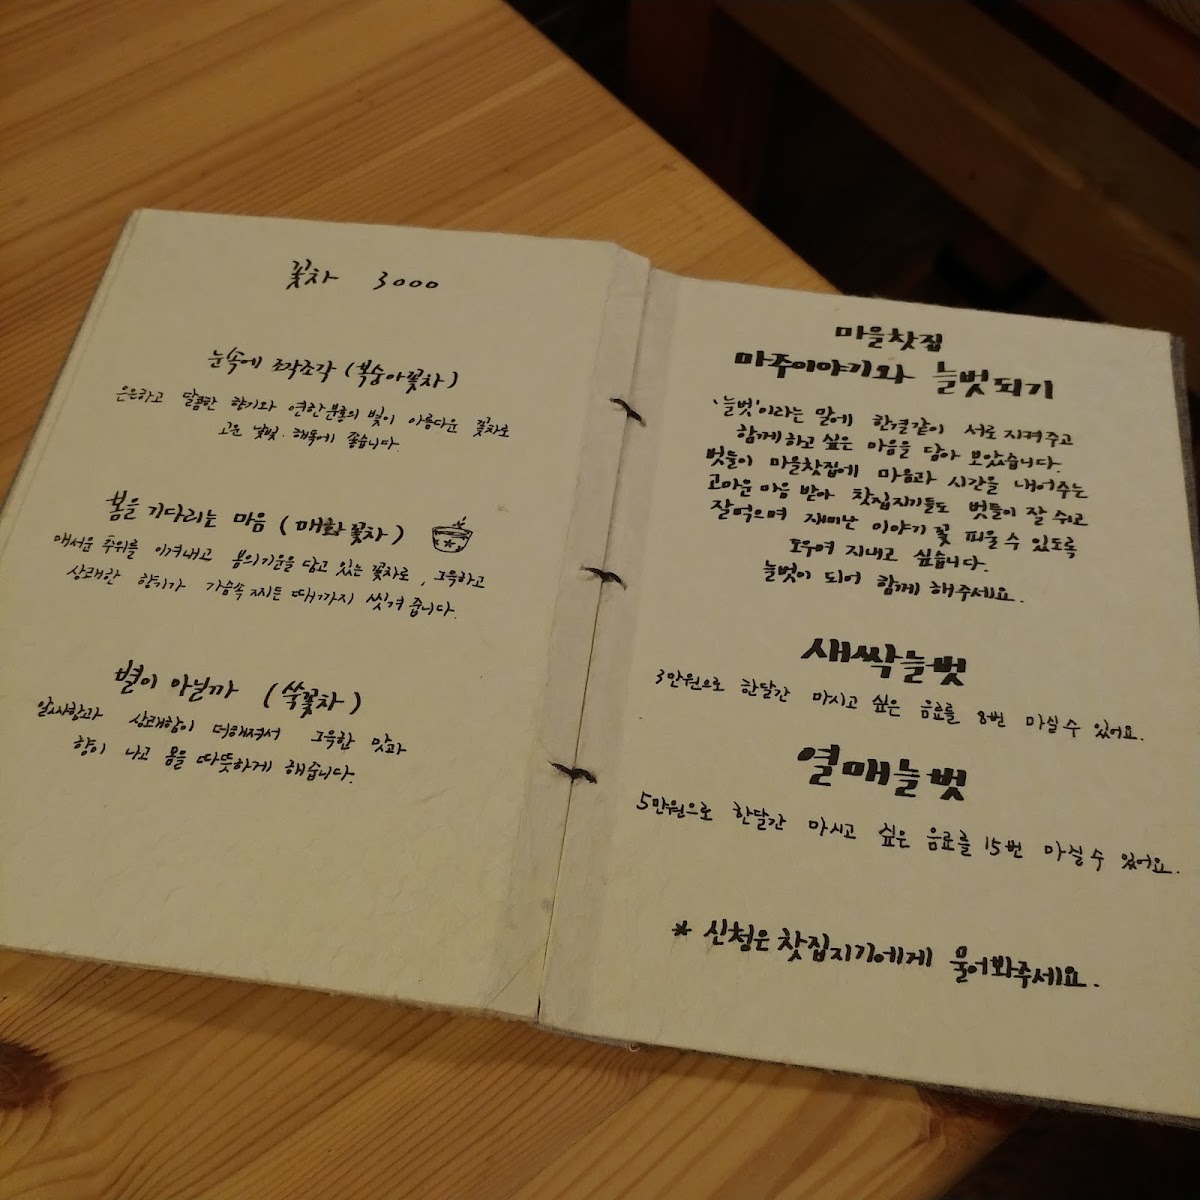 꽃차 3000
눈속에 조각조각 (복숭아꽃차)
은은하고 달콤한 향기와 연한분홍의 빛이 아름다운 꽃차로
고운 낯빛. 해독에 좋습니다.
봄을 기다리는 마음 (매화꽃차)
매서운 추위를 이겨내고 봄의기운을 담고 있는 꽃차로, 그윽하고
상쾌한 향기가 가슴속 찌든 때까지 씻겨 줍니다.
별이 아닐까 (쑥꽃차)
알싸함과 상쾌함이 더해져서 그윽한 맛과
향이 나고 몸을 따뜻하게 해줍니다.
마을찻집
마주이야기와 늘벗되기
'늘벗'이라는 말에 한결같이 서로 지켜주고
함께하고 싶은 마음을 담아 보았습니다.
벗들이 마을찻집에 마음과 시간을 내어주는
고마운 마음 받아 찻집지기들도 벗들이 잘 쉬고
잘먹으며 재미난 이야기 꽃 피울 수 있도록
도우며 지내고 싶습니다.
늘벗이 되어 함께 해주세요.
새싹늘벗
3만원으로 한달간 마시고 싶은 음료를 8번 마실 수 있어요.
열매늘벗
5만원으로 한달간 마시고 싶은 음료를 15번 마실 수 있어요.
* 신청은 찻집지기에게 물어봐주세요.